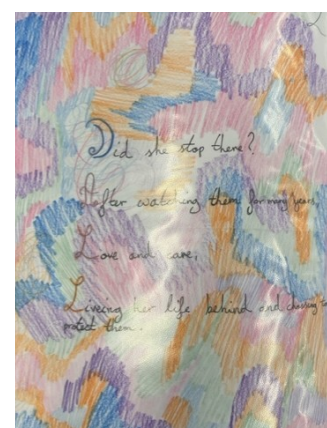 Did she stop there?
After watching them for many years,
Love and care,
Liveing her life behind and chosing to
protect them.